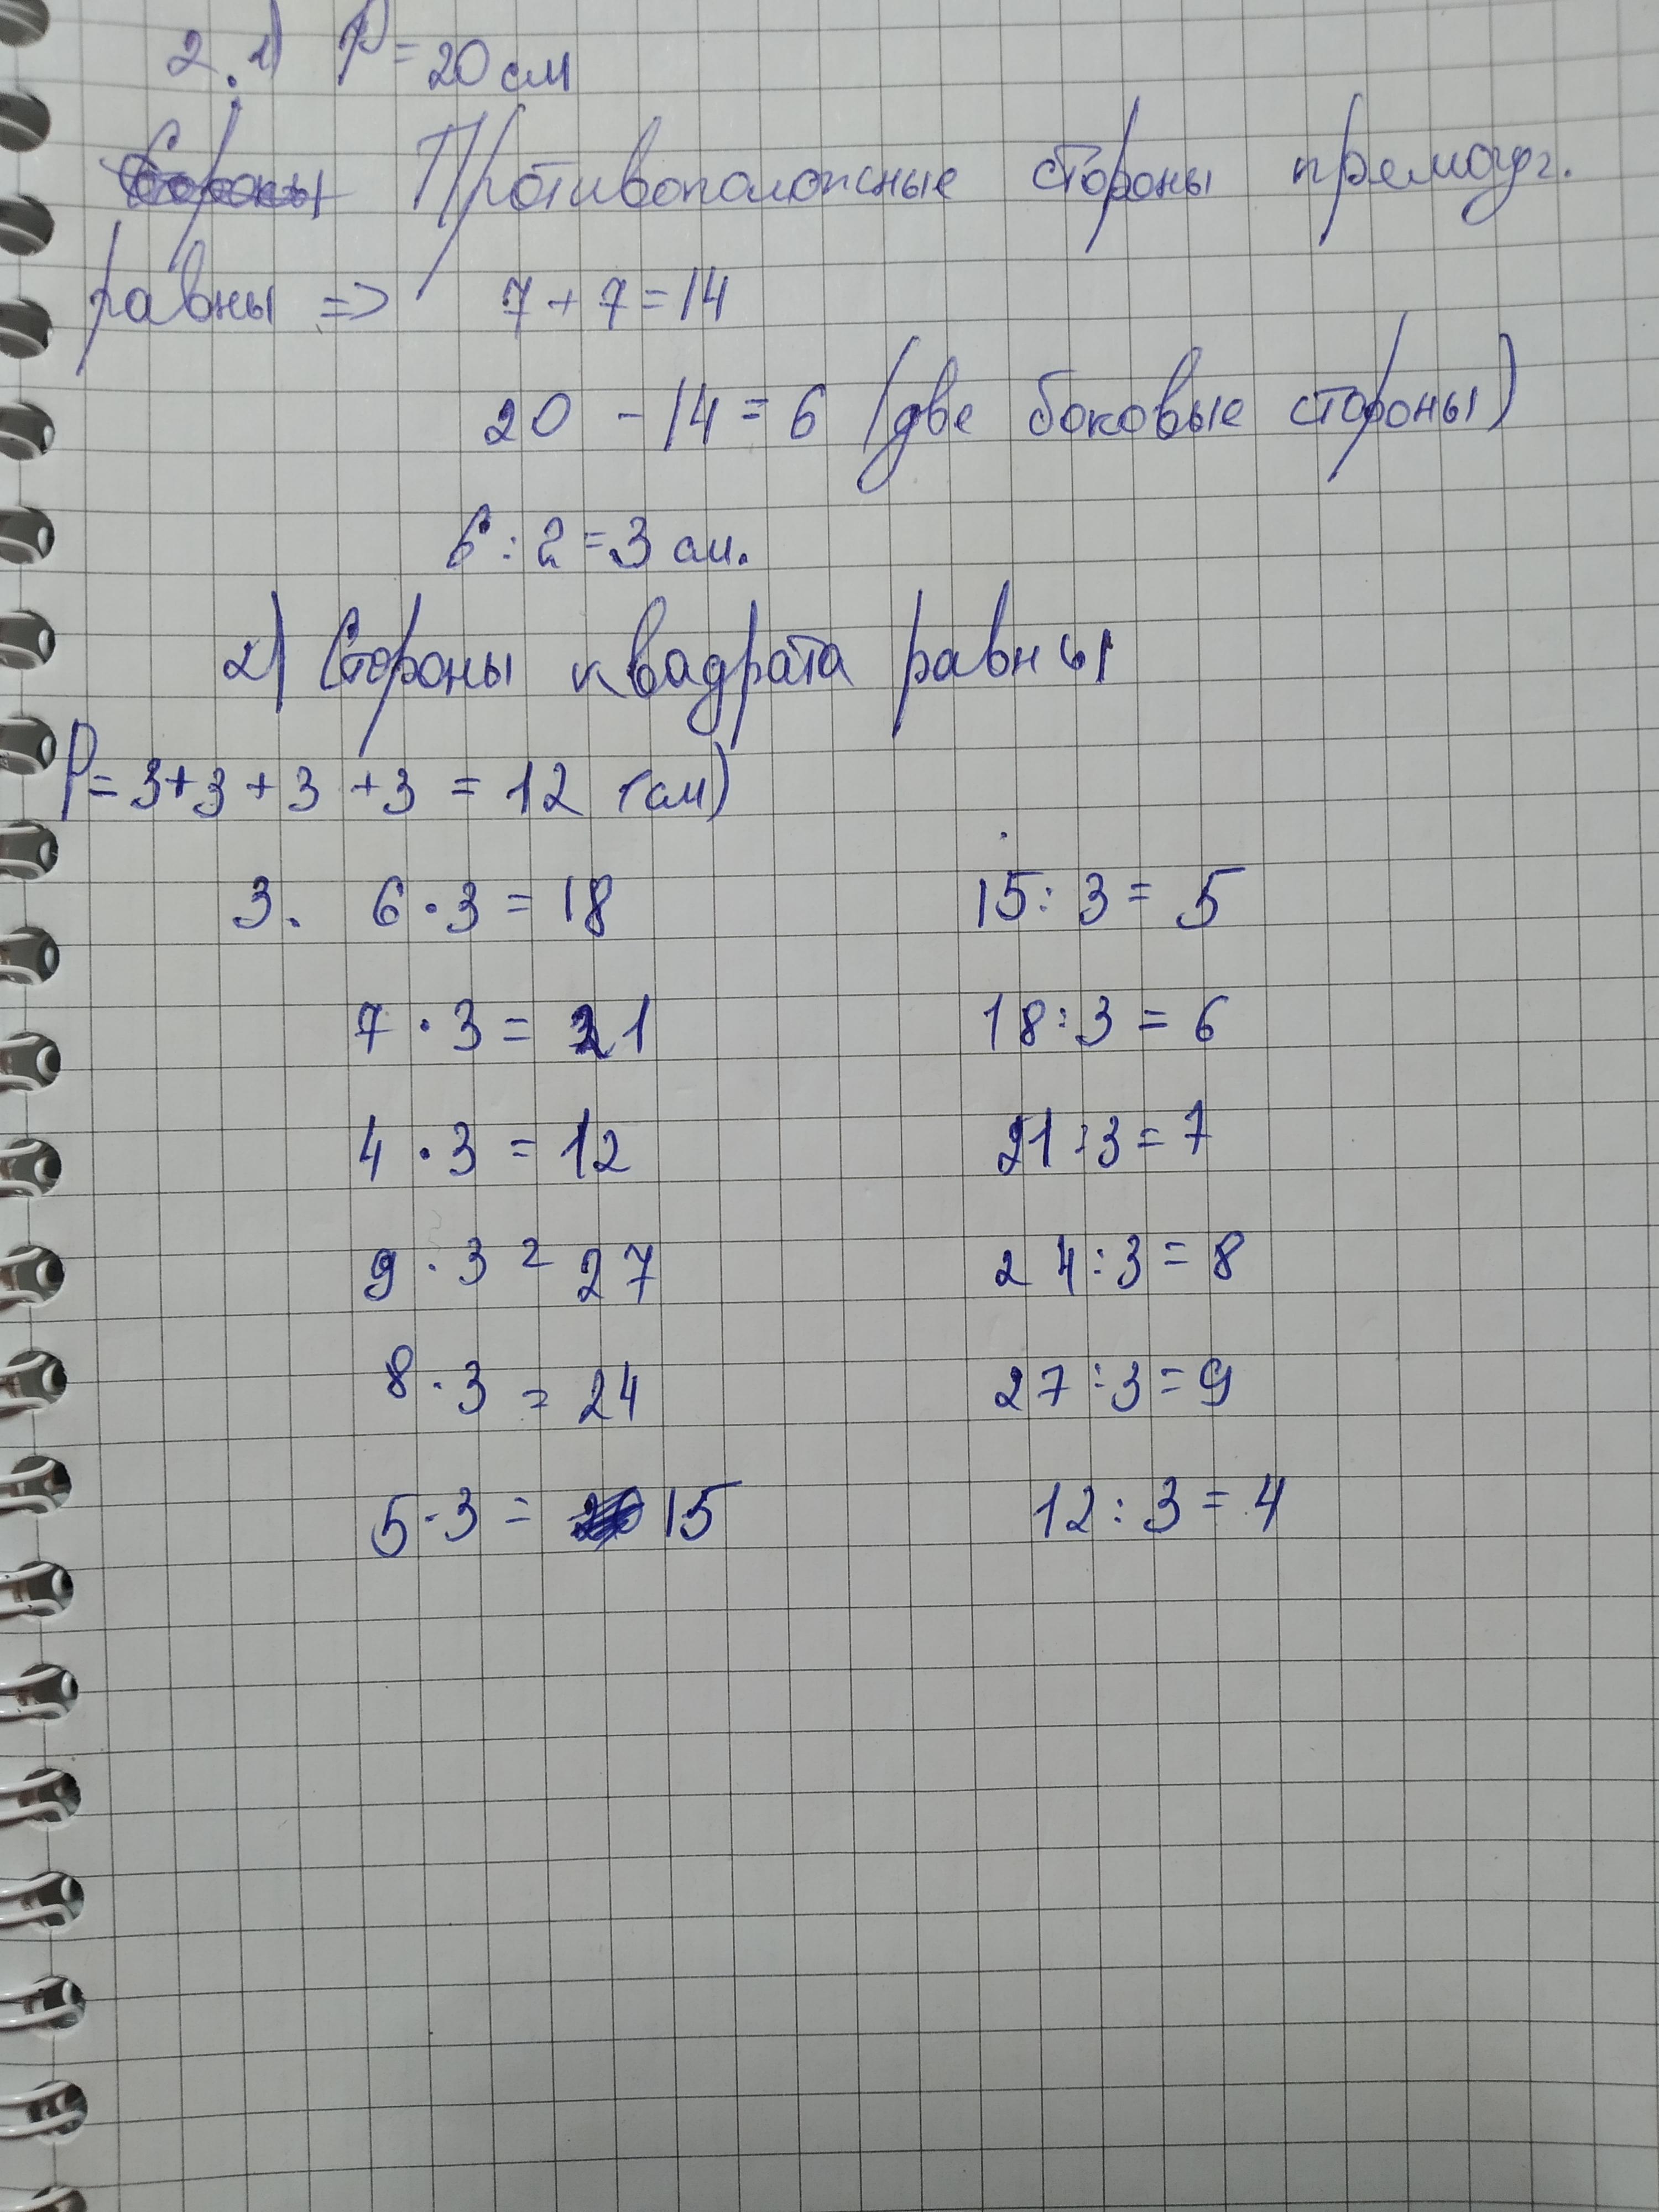 2. 1) P = 20 см
Стороны Противоположные стороны премоуг.
равны => 7 + 7 = 14
20 - 14 = 6 (две боковые стороны)
6 : 2 = 3 см.
2) Стороны квадрата равны
P = 3 + 3 + 3 + 3 = 12 (см)
3. 6 · 3 = 18 15 : 3 = 5
7 · 3 = 21 18 : 3 = 6
4 · 3 = 12 21 : 3 = 7
9 · 3 = 27 24 : 3 = 8
8 · 3 = 24 27 : 3 = 9
5 · 3 = 15 12 : 3 = 4